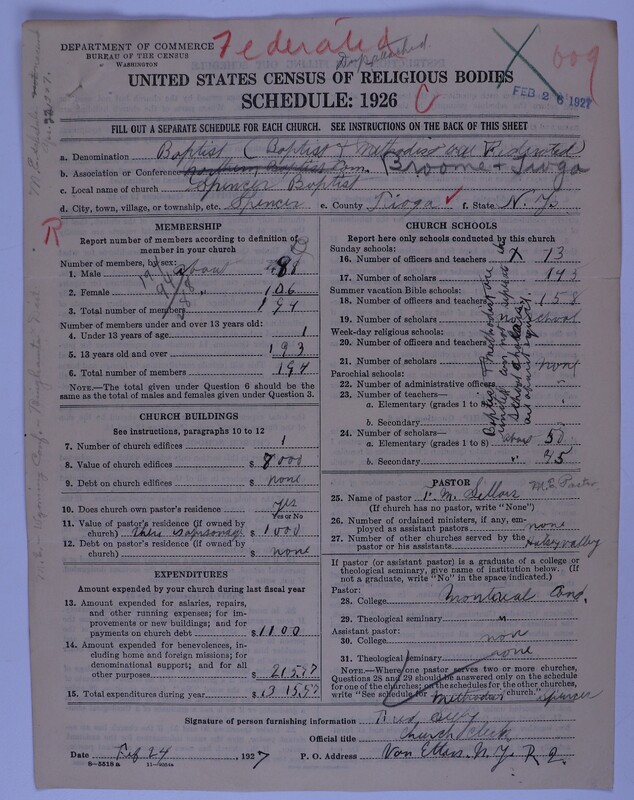 DEPARTMENT OF COMMERCE
BUREAU OF THE CENSUS
WASHINGTON
Federated
X
609
FEB 26 1927
UNITED STATES CENSUS OF RELIGIOUS BODIES
SCHEDULE: 1926
C
FILL OUT A SEPARATE SCHEDULE FOR EACH CHURCH. SEE INSTRUCTIONS ON THE BACK OF THIS SHEET
a. Denomination Baptist (Baptist & Methodist are Federated
b. Association or Conference Northern Baptist Broome & Tioga
c. Local name of church Spencer Baptist
d. City, town, village, or township, etc. Spencer e. County Tioga ✓ f. State N. Y.
R
MEMBERSHIP
Report number of members according to definition of member in your church
Number of members, by sex:
1. Male about 88
2. Female " 106
3. Total number of members 194
Number of members under and over 13 years old:
4. Under 13 years of age 1
5. 13 years old and over 193
6. Total number of members 194
NOTE.—The total given under Question 6 should be the same as the total of males and females given under Question 3.
CHURCH BUILDINGS
See instructions, paragraphs 10 to 12
7. Number of church edifices 1
8. Value of church edifices $ 7000
9. Debt on church edifices $ none
10. Does church own pastor's residence? yes
Yes or No
11. Value of pastor's residence (if owned by church) $ 1000
12. Debt on pastor's residence (if owned by church) $ none
EXPENDITURES
Amount expended by your church during last fiscal year
13. Amount expended for salaries, repairs, and other running expenses; for improvements or new buildings; and for payments on church debt $ 1100
14. Amount expended for benevolences, including home and foreign missions; for denominational support; and for all other purposes $ 215.57
15. Total expenditures during year $ 1315.57
CHURCH SCHOOLS
Report here only schools conducted by this church
Sunday schools:
16. Number of officers and teachers 13
17. Number of scholars 145
Summer vacation Bible schools:
18. Number of officers and teachers 158
19. Number of scholars no school
Week-day religious schools:
20. Number of officers and teachers
21. Number of scholars none
Parochial schools:
22. Number of administrative officers "
23. Number of teachers—
a. Elementary (grades 1 to 8) "
b. Secondary "
24. Number of scholars—
a. Elementary (grades 1 to 8) about 50
b. Secondary " 95
PASTOR
M. E. Pastor
25. Name of pastor
(If church has no pastor, write "None")
26. Number of ordained ministers, if any, employed as assistant pastors none
27. Number of other churches served by the pastor or his assistants Halsey valley
If pastor (or assistant pastor) is a graduate of a college or theological seminary, give name of institution below. (If not a graduate, write "No" in the space indicated.)
Pastor:
28. College Montreal Can.
29. Theological seminary "
Assistant pastor:
30. College non
31. Theological seminary none
NOTE.—Where one pastor serves two or more churches, Questions 28 and 29 should be answered only on the schedule for one of the churches; on the schedules for the other churches, write "See schedule for Methodist Spencer church."
Signature of person furnishing information Fred
Official title Church Clerk
Date Feb 24, 1927 P. O. Address Van Etten N. Y. R 2
8—5518a 11—9054a